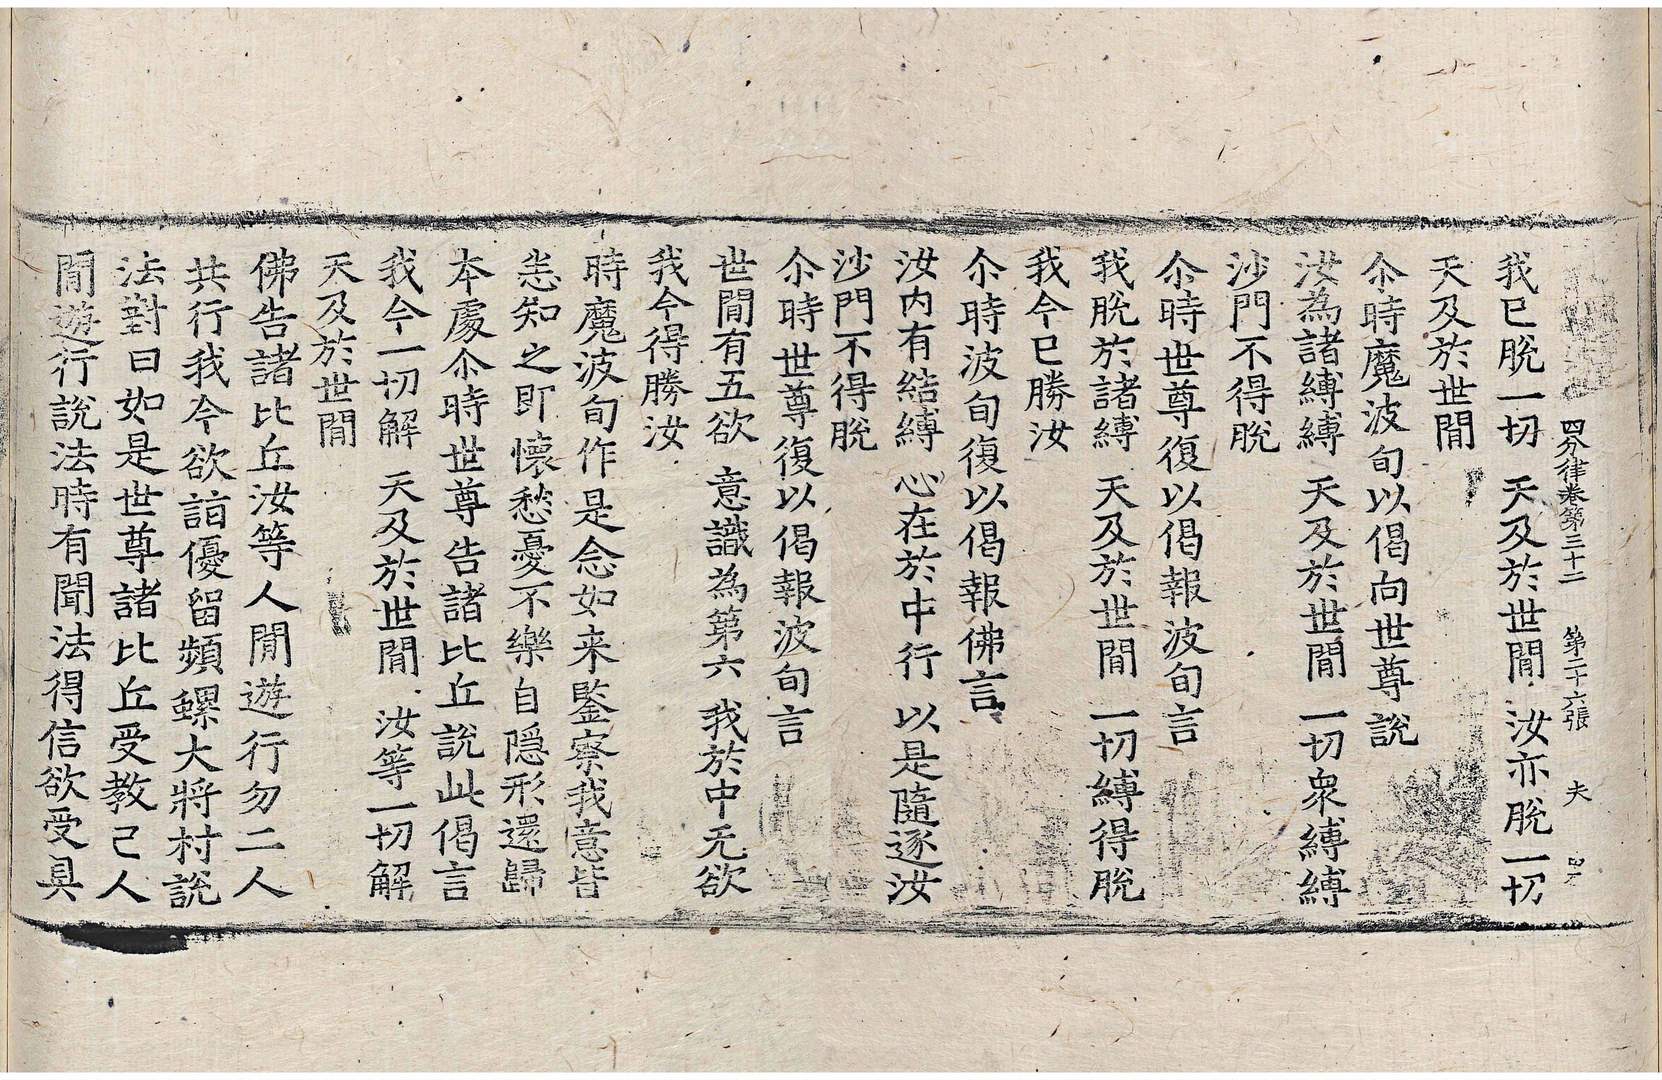 四分律卷第三十二　第二十六張　夫
我已脫一切　天及於世閒　汝亦脫一切
天及於世閒
尒時魔波旬以偈向世尊說
汝為諸縛縛　天及於世閒　一切眾縛縛
沙門不得脫
尒時世尊復以偈報波旬言
我脫於諸縛　天及於世閒　一切縛得脫
我今已勝汝
尒時波旬復以偈報佛言
汝内有結縛　心在於中行　以是隨逐汝
沙門不得脫
尒時世尊復以偈報波旬言
世閒有五欲　意識為第六　我於中无欲
我今得勝汝
時魔波旬作是念如来鑒察我意皆
悉知之即懷愁憂不樂自隱形還歸
本處尒時世尊告諸比丘說此偈言
我今一切解　天及於世閒　汝等一切解
天及於世閒
佛告諸比丘汝等人閒遊行勿二人
共行我今欲詣優留頻螺大將村說
法對曰如是世尊諸比丘受教已人
閒遊行說法時有聞法得信欲受具